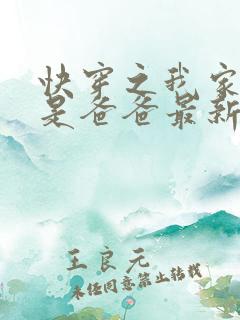 快穿之我家
是爸爸最新
王良元
未经同意禁止转载